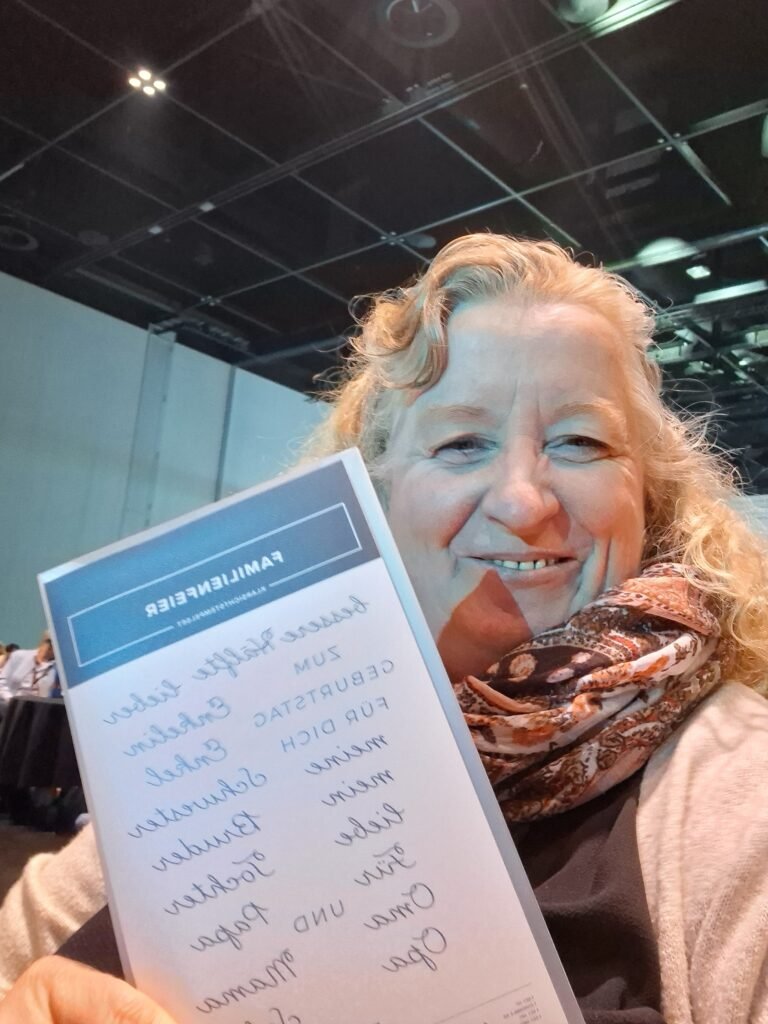 FAMILIENFEIER
KLARSICHTSTEMPELSET
bessere Hälfte lieber
ZUM Enkelin
GEBURTSTAG Enkel
FÜR DICH
meine Schwester
mein Bruder
liebe Tochter
Für
Oma UND Papa
Opa Mama